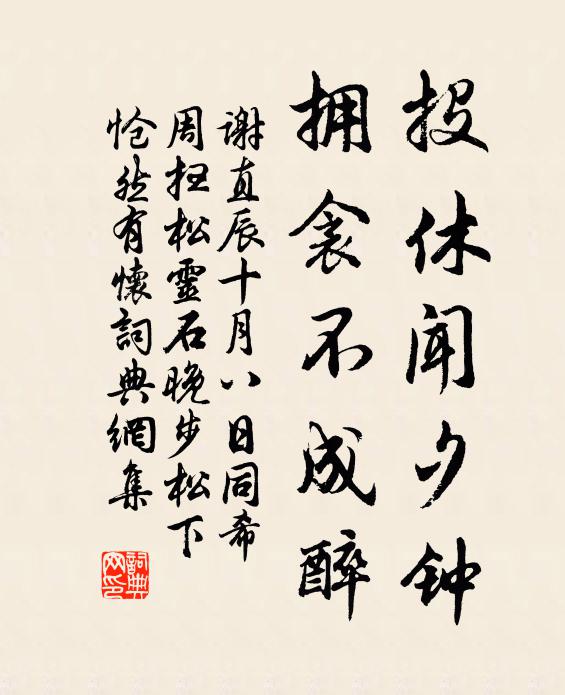 投休闻夕钟
拥衾不成醉
谢直辰十月八日同希
周扫松靈石晚步松下
怆然有懷詞典網集
詞典
网印